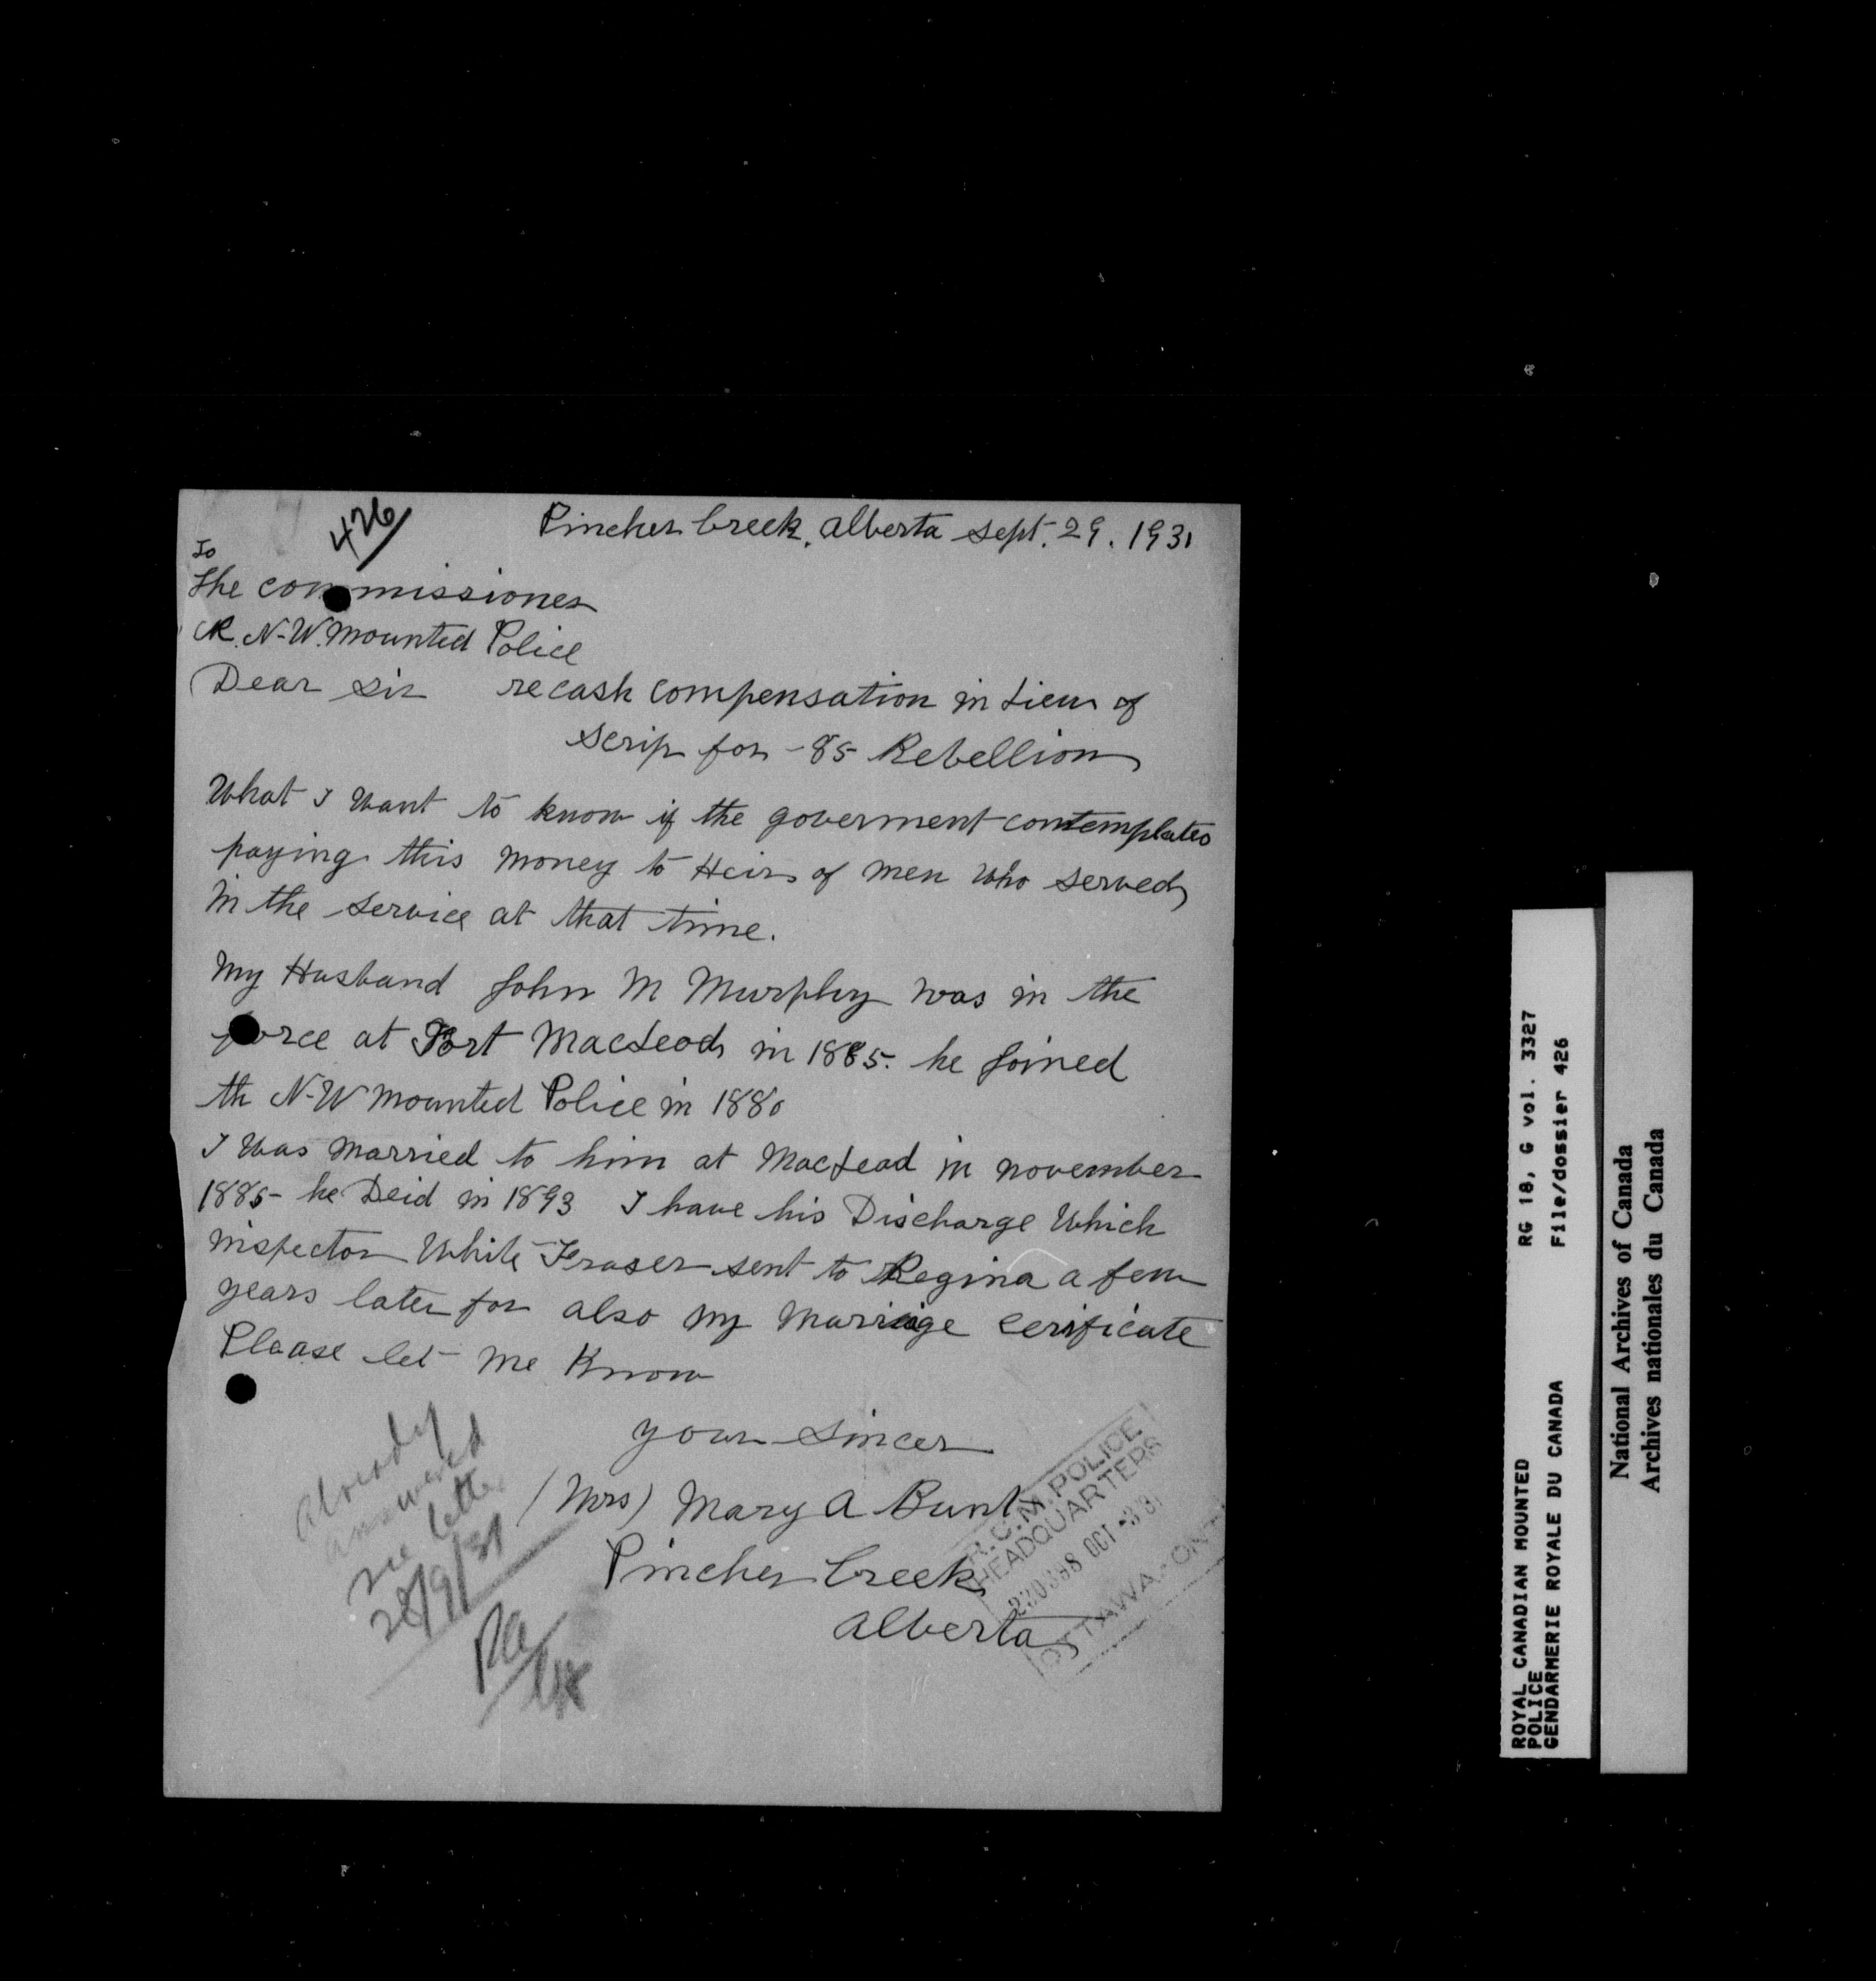 426
Pincher Creek, Alberta Sept. 29. 1931
To
The commissioner
R. N-W. mounted Police
Dear Sir re cash compensation in Lieu of
Scrip for -85 Rebellion
What I want to know if the goverment contemplates
paying this money to Heirs of men who served
in the service at that time.
My Husband John M Murphy was in the
force at Fort MacLeod in 1885. he joined
th N-W mounted Police in 1880
I was married to him at MacLeod in november
1885- he Deid in 1893 I have his Discharge Which
inspector White-Fraser sent to Regina a few
years later for also my marriage cerificate
Please let me Know
your Sincer
(Mrs) Mary A Bunt
Pincher Creek
Alberta
already
answered
see letter
28/9/31
R.C.M. POLICE
HEADQUARTERS
OCT
OTTAWA, ONT
ROYAL CANADIAN MOUNTED RG 18, G vol. 3327
POLICE
GENDARMERIE ROYALE DU CANADA File/dossier 426
National Archives of Canada
Archives nationales du Canada